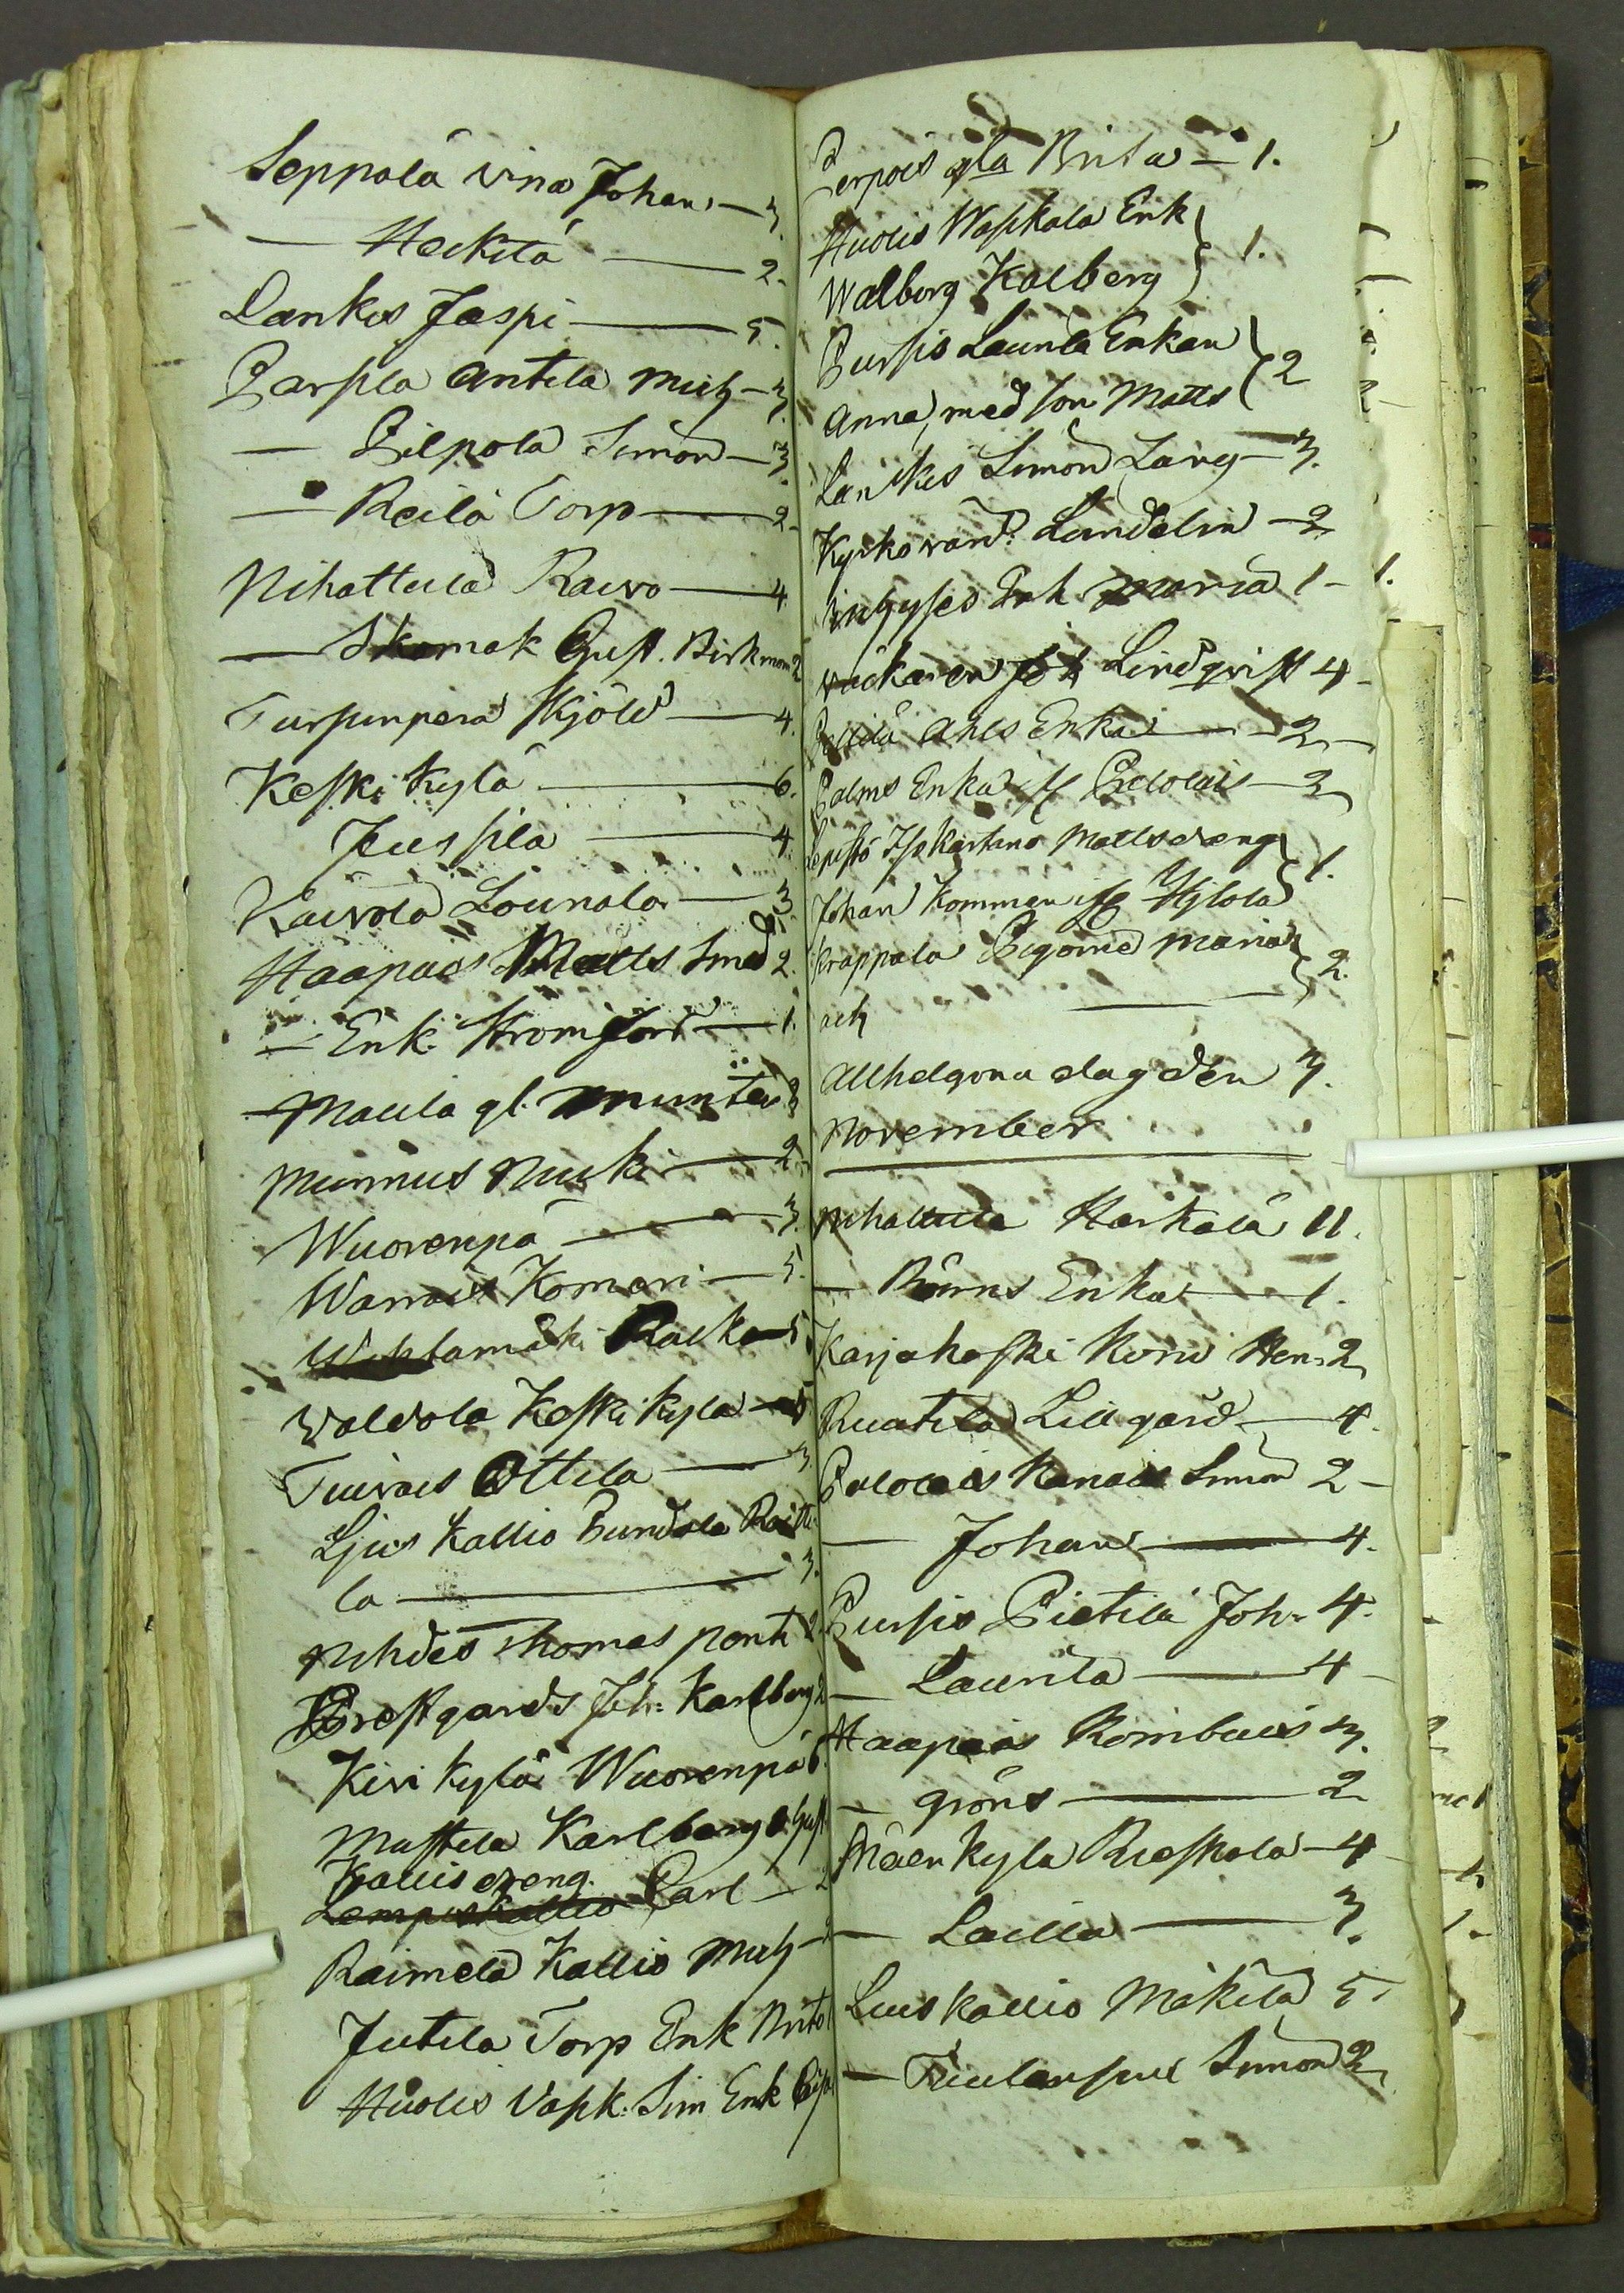 Seppälä vina Johan — 3.
— Heikilä — 2.
Lankes Jaspi — 5.
Parsila Antila Mich — 3.
— Pilpola Simon — 3.
— Reilä Torp — 2
Nihattula Raivo — 4
— Skomak Gust. Birkman 2
Tursunpera Skjöld — 4.
Keski Kylä — 6.
Jussila — 4.
Kaivola Lounala — 3.
Haapais Matts Smed 2.
— Enk. Stromfors — 1.
Maula gl. Munter 3
Munnus Nuuki — 2
Wuorenpä — 3.
Warrais Komari — 5.
Raiko — 5
Waldola Keski Kyla — 5
Tuirais Ottila — 3.
Ljus Kallio Pundola Raitti-
la — 3.
Nihdes Thomas Pent 2.
Prestgards Joh: Karlberg 2
Kirikylä Wuorenpä 6.
Mustila Karlberg Gust
Kallis dreng.
Lempis Kallio Carl — 2
Raimela Kallio Mich —
Jutila Torp Enk Brita
Huolis Vapk. Sim Enk Cisa
Perpois gla Brita — 1.
Huolis Wapkala Enk
Walborg Kalberg } 1.
Pursis Launla Enkan
Anna, med son Matts } 2
Lankes Simon Lång — 3.
Kyrkovard: Lundelin — 2
Enk Maria 1 — 1.
Joh Lindqvist 4 —
Ahls Enka — 2 —
Palms Enka Palolais — 2
Isokartano Matts dreng
Johan Kommen Yjlola } 1.
Krappala Pigorne Maria
och — } 2.
Allhelgona dag den 3.
November
Nihattula Harkälä 11.
— Börns Enka — 1.
Karjakoski Korvi Hen. 2
Ruatila Lillgård — 4.
Palolais Kanais Simon 2 —
— Johan — 4.
Pursis Pietilä Joh. 4.
— Launla — 4 —
Haapais Rombuis 3.
— Gröns — 2
Mäenkyla Rieskala — 4
— Laula — 3.
Luiskallio Mäkilä 5.
— Tuulensuu Simon 2